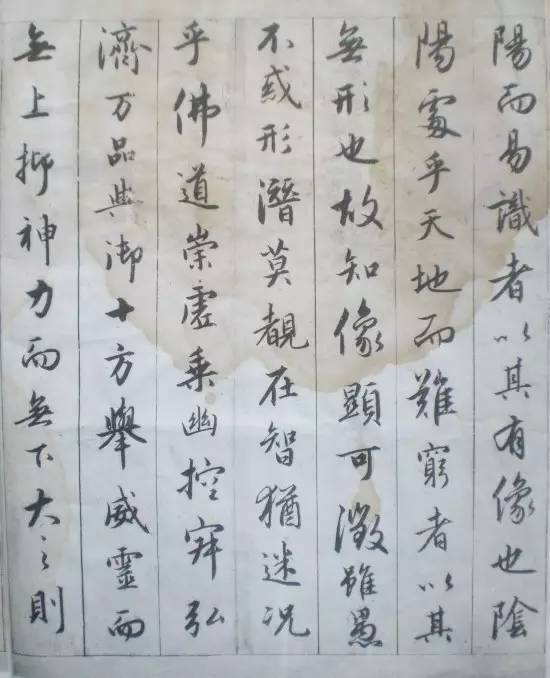 陽而易識者以其有像也陰
陽處乎天地而難窮者以其
無形也故知像顯可徵雖愚
不惑形潛莫覩在智猶迷況
乎佛道崇虛乘幽控寂弘
濟万品典御十方舉威靈而
無上抑神力而無下大之則